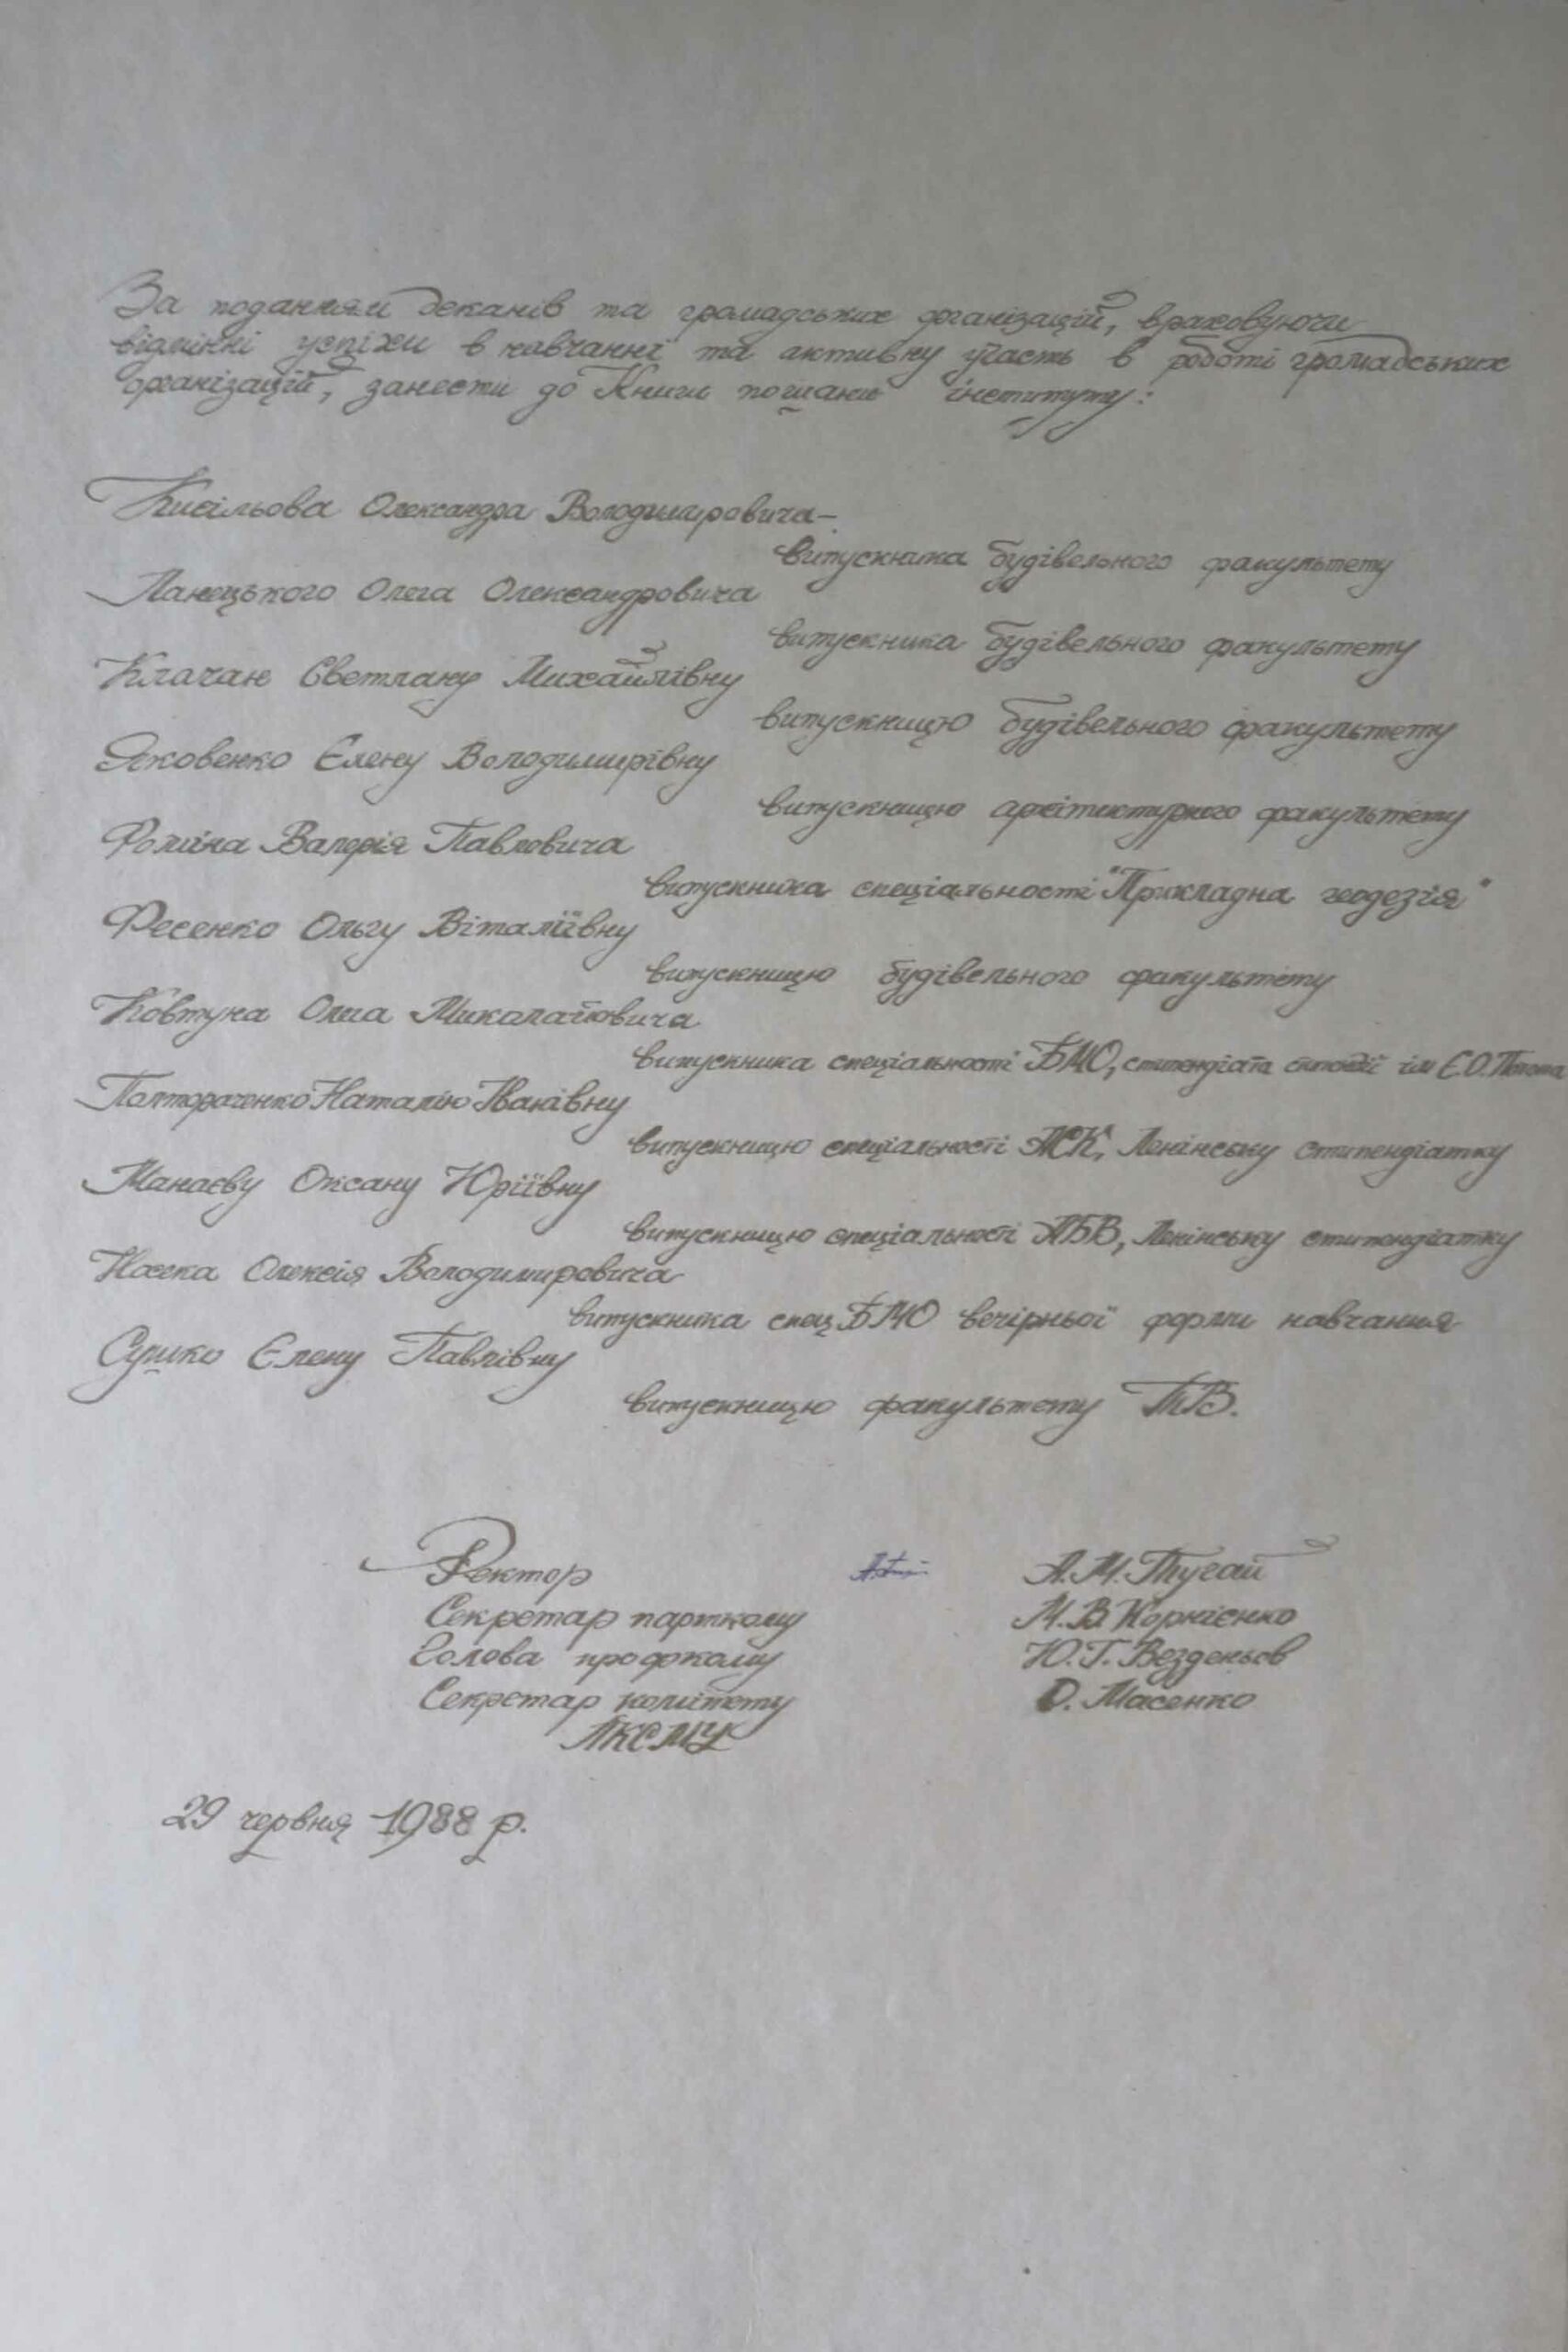 За поданням деканів та громадських організацій, враховуючи
відмінні успіхи в навчанні та активну участь в роботі громадських
організацій, занести до Книги пошани інституту:
Кисільова Олександра Володимировича-
випускника будівельного факультету
Ланецького Олега Олександровича
випускника будівельного факультету
Клачан Светлану Михайлівну
випускницю будівельного факультету
Яковенко Єлену Володимирівну
випускницю архітектурного факультету
Фоміна Валерія Павловича
випускника спеціальності "Прикладна геодезія"
Фесенко Ольгу Віталіївну
випускницю будівельного факультету
Ковтуна Олега Миколайовича
випускника спеціальності БМО, стипендіата ім Є.О. Патона
Полтораченко Наталію Іванівну
випускницю спеціальності МСК, Ленінську стипендіатку
Манаєву Оксану Юріївну
випускницю спеціальності АБВ, Ленінську стипендіатку
Носка Олексія Володимировича
випускника спец БМО вечірньої форми навчання
Сушко Єлену Павлівну
випускницю факультету ТВ.
Ректор А.М. Тугай
Секретар парткому М.В. Корнієнко
Голова профкому Ю.Г. Везденьов
Секретар комітету О. Масенко
ЛКСМУ
29 червня 1988 р.